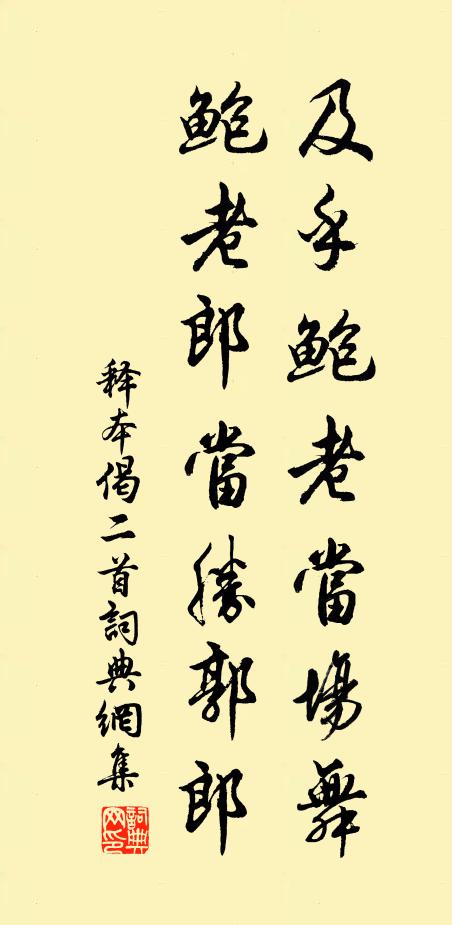 及乎鲍老當場舞
鲍老郎當勝郭郎
释本偈二首詞典網集
詞典網印